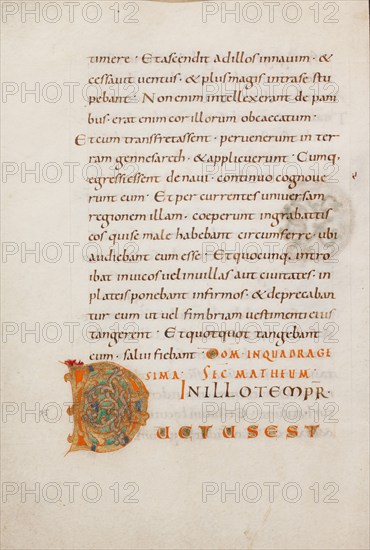 timere · Et ascendit adillos innavim · &
cessavit ventus · & plus magis intrase stu
pebant · Non enim intellexerant depani
bus · erat enim cor illorum obcaecatum ·
Et cum transfretassent · pervenerunt inter
ram gennesareth · & applicuerunt · Cumq;
egressi essent denavi · continuo cognove
runt eum · Et percurrentes universam
regionem illam · coeperunt ingrabattis
eos quise male habebant circumferre · ubi
audiebant eum esse · Et quocunq; introi
bat invicos vel invillas aut civitates · in
plateis ponebant infirmos · & deprecaban
tur eum ut vel fimbriam vestimenti eius
tangerent · Et quotquot tangebant
eum · salvi fiebant · DOM · INQUADRAGE
SIMA · SEC MATHEUM ·
INILLOTEMPR ·
DUCTUSEST